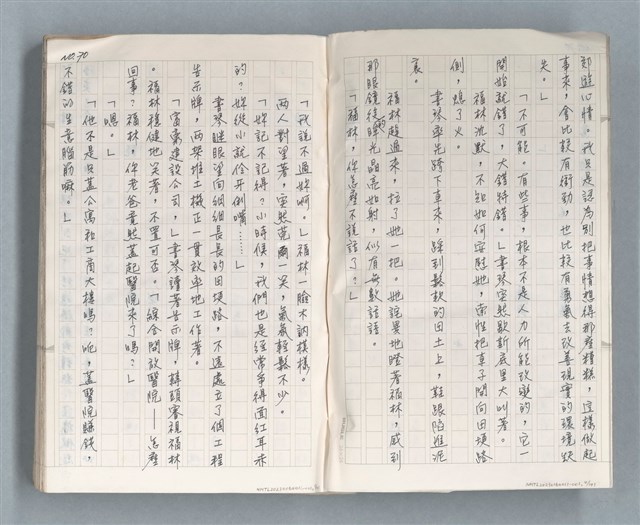 郊遊心情。我只是認為別把事情想得那麼糟糕，這樣做起
事來，會比較有衝勁，也比較有勇氣去改善現實的環境缺
失。」
「不可能。有些事，根本不是人力所能改變的，它一
開始就錯了，大錯特錯。」書琴突然歇斯底里大叫著。
福林沈默，不知如何安慰她，索性把車子開向田埂路
側，熄了火。
書琴率先跨下車來，踩到鬆軟的田土上，鞋跟陷進泥
裏。
福林趕過來，拉了她一把。她訝異地瞪著福林，感到
那眼鏡後兩眸光晶亮如射，似有無數話語。
「福林，你怎麼不說話了？」
NO. 70
「我說不過妳啊。」福林一臉木訥模樣。
兩人對望著，突然莞爾一笑，氣氛輕鬆不少。
「妳記不記得？小時候，我們也是經常爭得面紅耳赤
的？妳從小就伶牙俐嘴……」
書琴瞇眼望向細細長長的田埂路，不遠處立了個工程
告示牌，兩架堆土機正一貫效率地工作著。
「富東建設公司，」書琴讀著告示牌，轉頭審視福林
。福林穩健地笑著，不置可否。「綜合開放醫院——怎麼
回事？福林，你老爸竟然蓋起醫院來了嗎？」
「嗯。」
「他不是只蓋公寓和工商大樓嗎？呃，蓋醫院賺錢，
不錯的生意腦筋嘛。」